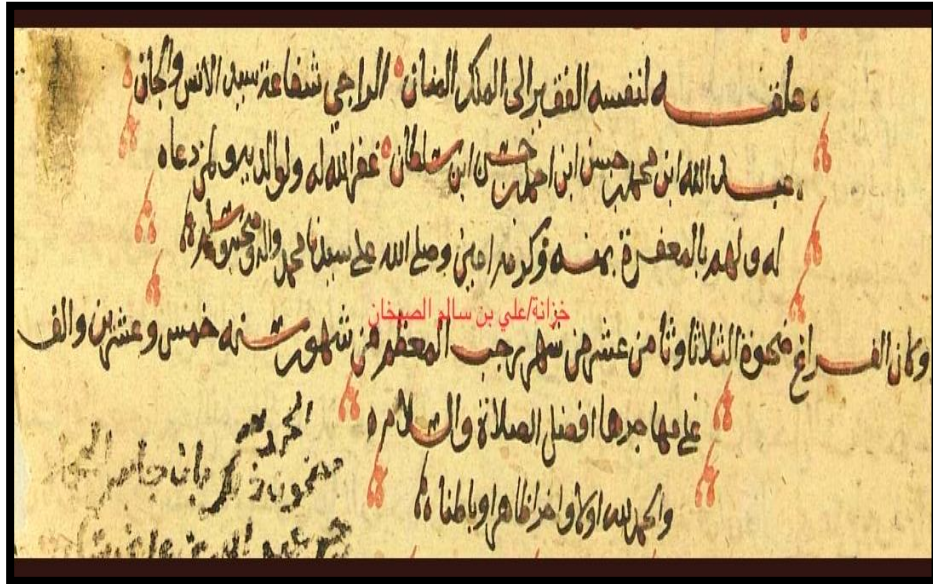 علقه لنفسه الفقير الى الملك المنان الراجي شفاعة سيد الانس والجان
عبد الله ابن محمد حسن ابن احمد حسن ابن سلطان غفر الله له ولوالديه ولمن دعاه
له ولهم بالمغفرة بمنه وكرمه امين وصلى الله على سيدنا محمد واله وصحبه وسلم
خزانة/علي بن سالم الصيخان
وكان الفراغ ضحوة الثلاثا وثامن عشر من شهر رجب المعظم من شهور سنه خمس وعشرين والف
على مهاجرها افضل الصلاة والسلام
والحمد لله اولا واخرا ظاهرا وباطنا
الحمد لله